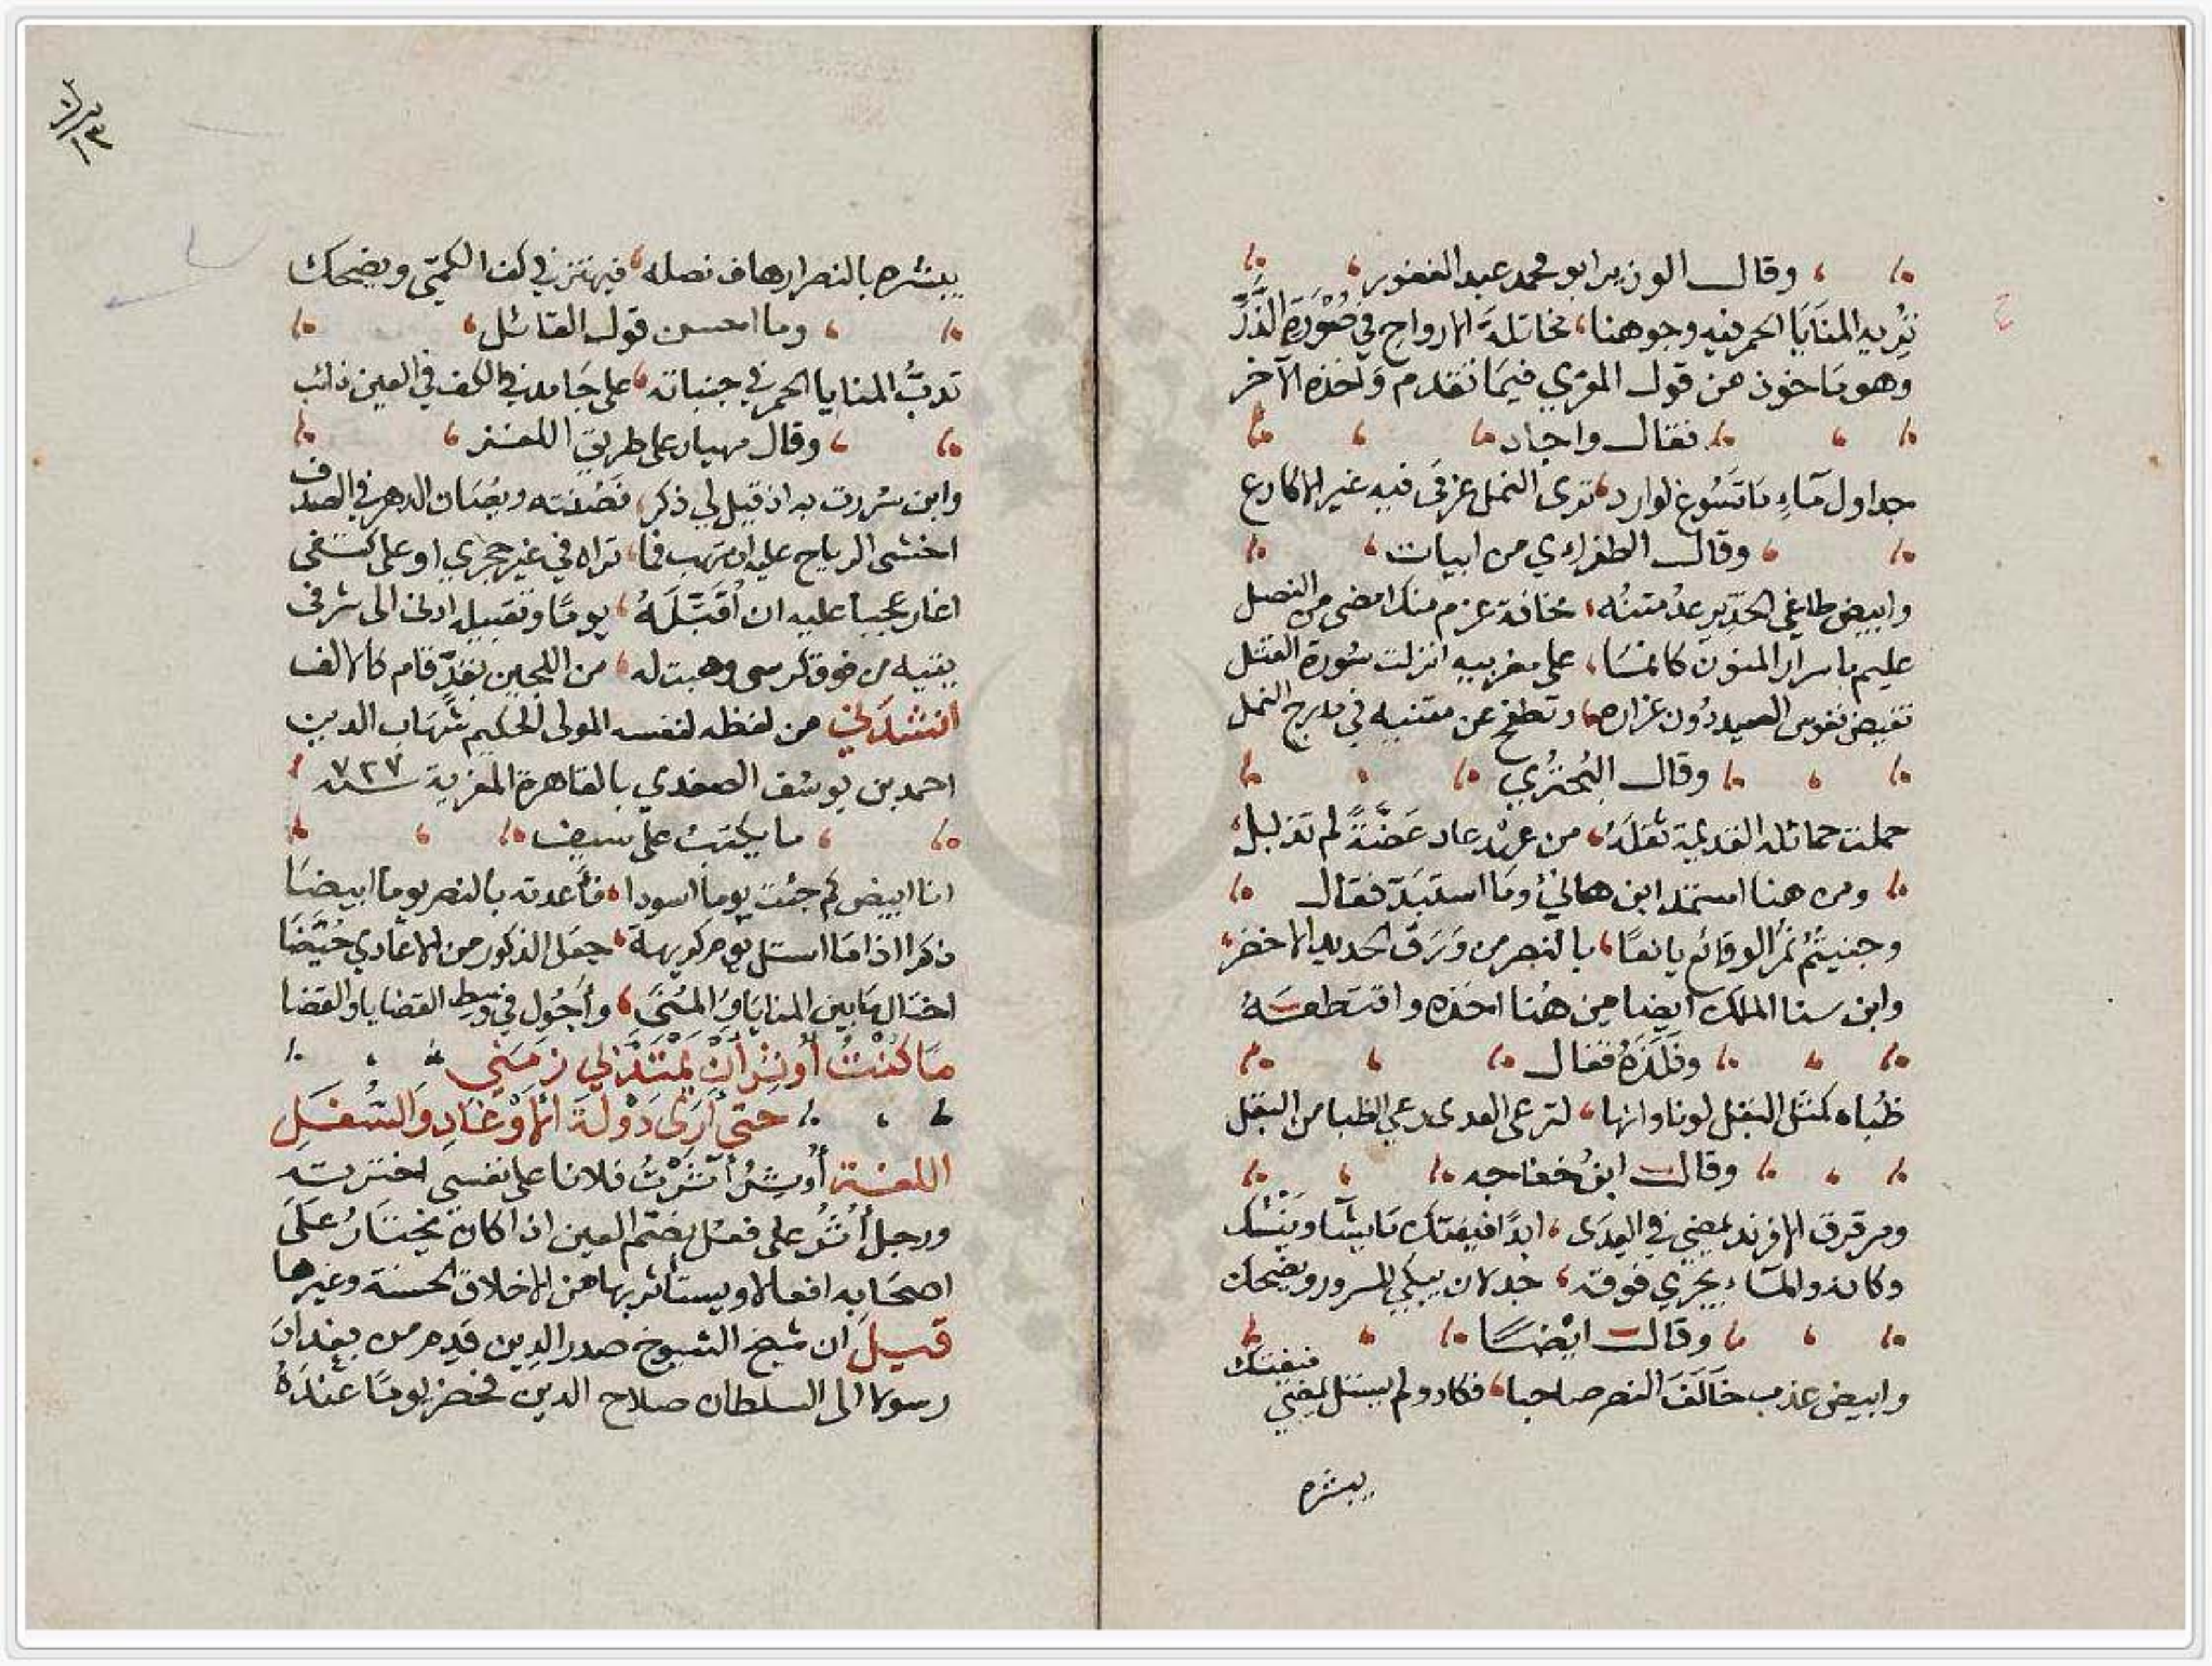 وقال الوزير ابو محمد عبد الغفور
تريه المنايا الحمر فيه وجوهنا، مخاتلة الارواح في صورة الذر
وهو ماخوذ من قول المعري فيما تقدم واخذه الآخر
فقال واجاد
جداول مآءٍ ما تسوغ لوارد، ترى النمل غرقى فيه غير الاكارع
وقال الطغراءي من ابيات
وابيض طاغي الحد يرعد متنه، مخافة عزم منك امضى من النصل
عليم باسرار المنون كانما، على مضربيه انزلت سورة القتل
تفيض نفوس الصيد دون غراره، وتطفح عن متنيه في مدرج النمل
وقال البُحتُري
حملت حمائله القديمة بقلةً، من عهد عاد غضّةً لم تذبل
ومن هنا استمد ابن هانئ وما استبدّ فقال
وجنيتُمُ ثمر الوقائع يانعًا، بالنصر من ورق الحديد الاخضر
وابن سنا الملك ايضا من هنا اخذه واقتطعه
وفلّذه فقال
ظباه كمثل البقل لونا وانها، لترعى العدى رعي الظبا من البقل
وقال ابن خفاجه
ومرقرق الافرند يمضي في العِدَى، ابدًا فيفتك ما يشآ وينسك
وكانه والمآء يجري فوقه، جذلان يبكي للسرور ويضحك
وقال ايضًا
وابيض عذب حالف النصر صاحبا، فكاد ولم يستل يمضي فيفتك
يبشره
يبشره بالنصر ارهاف نصله، فيهتز في كف الكميّ ويضحك
وما احسن قول القائل
تدبّ المنايا الحمر في جنباته، على جامد في الكف في العين ذائب
وقال مهيار على طريق اللغز
وابن سررت به اذ قيل لي ذكر، فصنته ويصان الدهر في الصدف
اخشى الرياح عليه ان تهب فما، تراه في غير حجري او على كتفي
اغار عجبا عليه ان أُقبّلهُ، يومًا وتقبيله ادنى الى شرفى
يغنيه من فوق كرسى وهبت له، من اللجين بقدّ قام كالالف
انشدني من لفظه لنفسه المولى الحكيم شهاب الدين
احمد بن يوسف الصفدي بالقاهرة المعزية سنة ٧٢٧
ما يكتب على سيف
انا ابيض كم جئت يوما اسودا، فأعدته بالنصر يوما ابيضا
ذكرا اذا ما استل يوم كريهة، جعل الذكور من الاعادي حُيّضا
اختال ما بين المنايا والمُنى، وأجول في وسط القضايا والقضا
ما كنت أوثر أن يمتد بي زمني
حتى أرى دولة الاوغاد والسفل
اللغة أوثر أثرت فلانا على نفسي اخترته
ورجل أثُر على فعُل بضم العين اذا كان يختار على
اصحابه افعالا ويستأثر بها من الاخلاق الحسنة وغيرها
قيل ان شيخ الشيوخ صدر الدين قدم من بغداد
رسولا الى السلطان صلاح الدين فحضر يومًا عنده